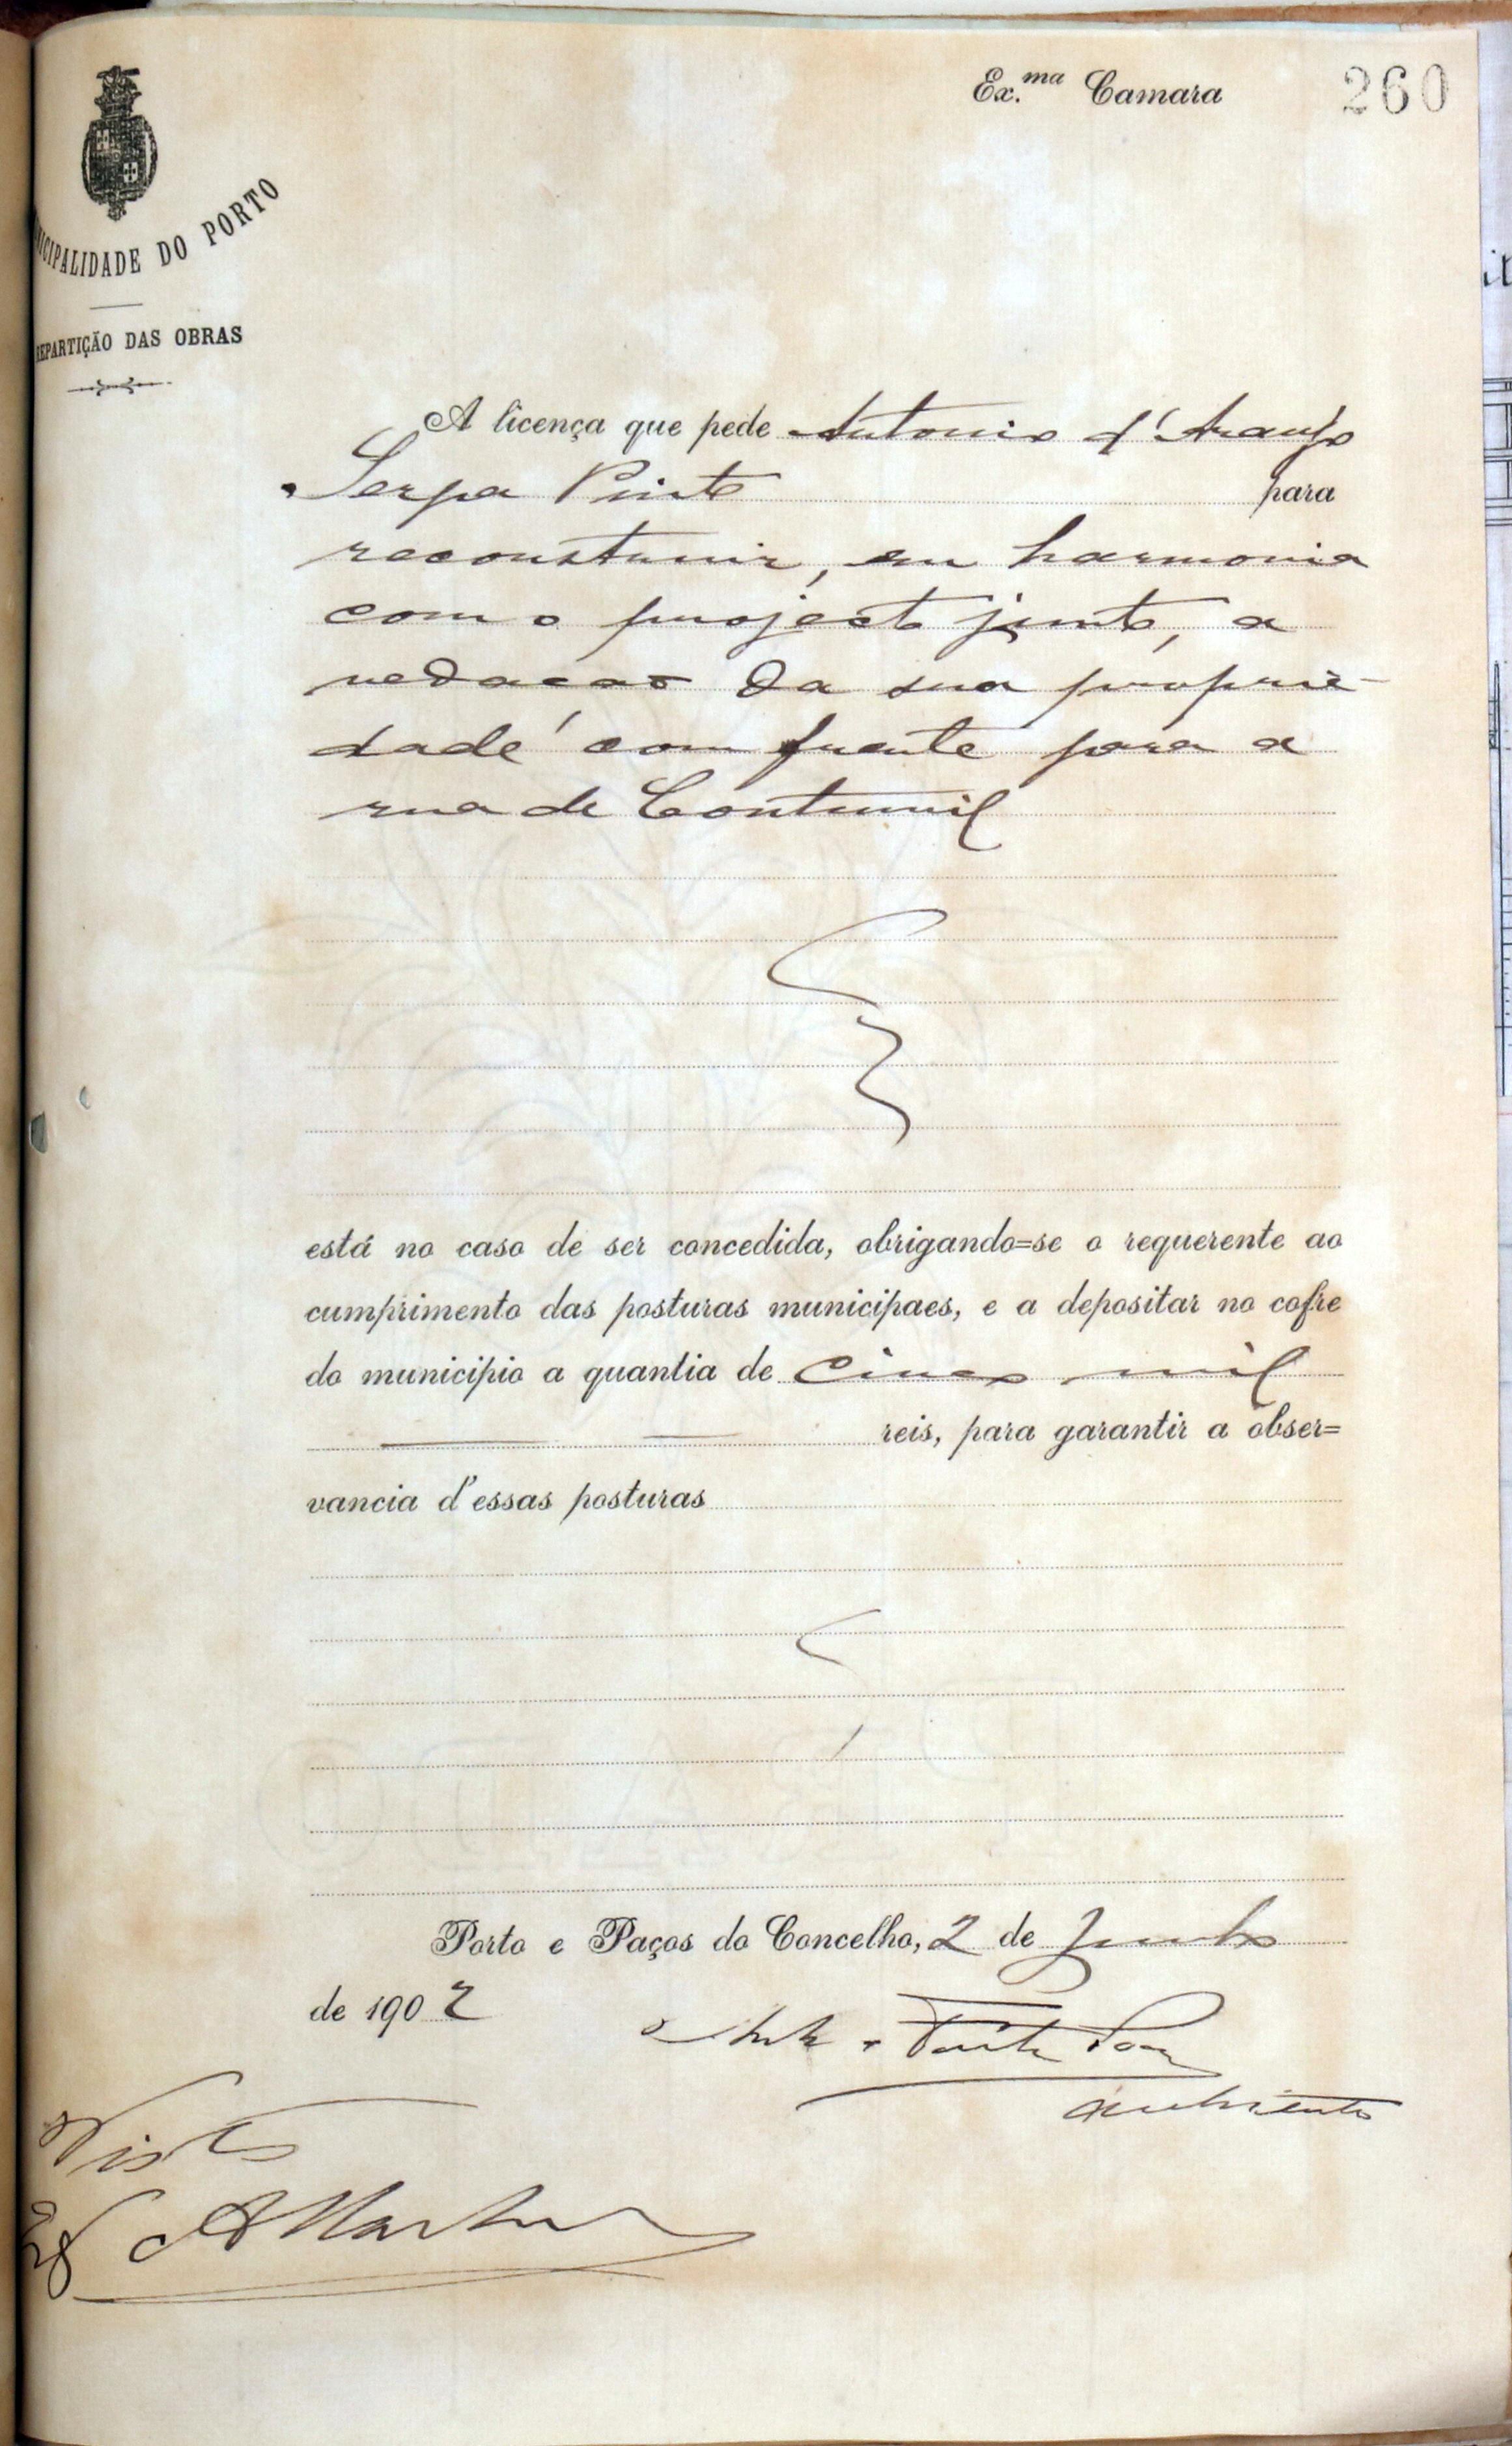 Ex.ma Camara
260
NICIPALIDADE DO PORTO
REPARTIÇÃO DAS OBRAS
A licença que pede Antonio d'Araujo
Serpa Pinto para
reconstruir, em harmonia
com o projecto junto, a
vedação da sua proprie-
dade com frente para a
rua de Contumil
está no caso de ser concedida, obrigando=se o requerente ao
cumprimento das posturas municipaes, e a depositar no cofre
do municipio a quantia de cinco mil
reis, para garantir a obser=
vancia d'essas posturas
Porto e Paços do Concelho, 2 de Junho
de 1902
Visto